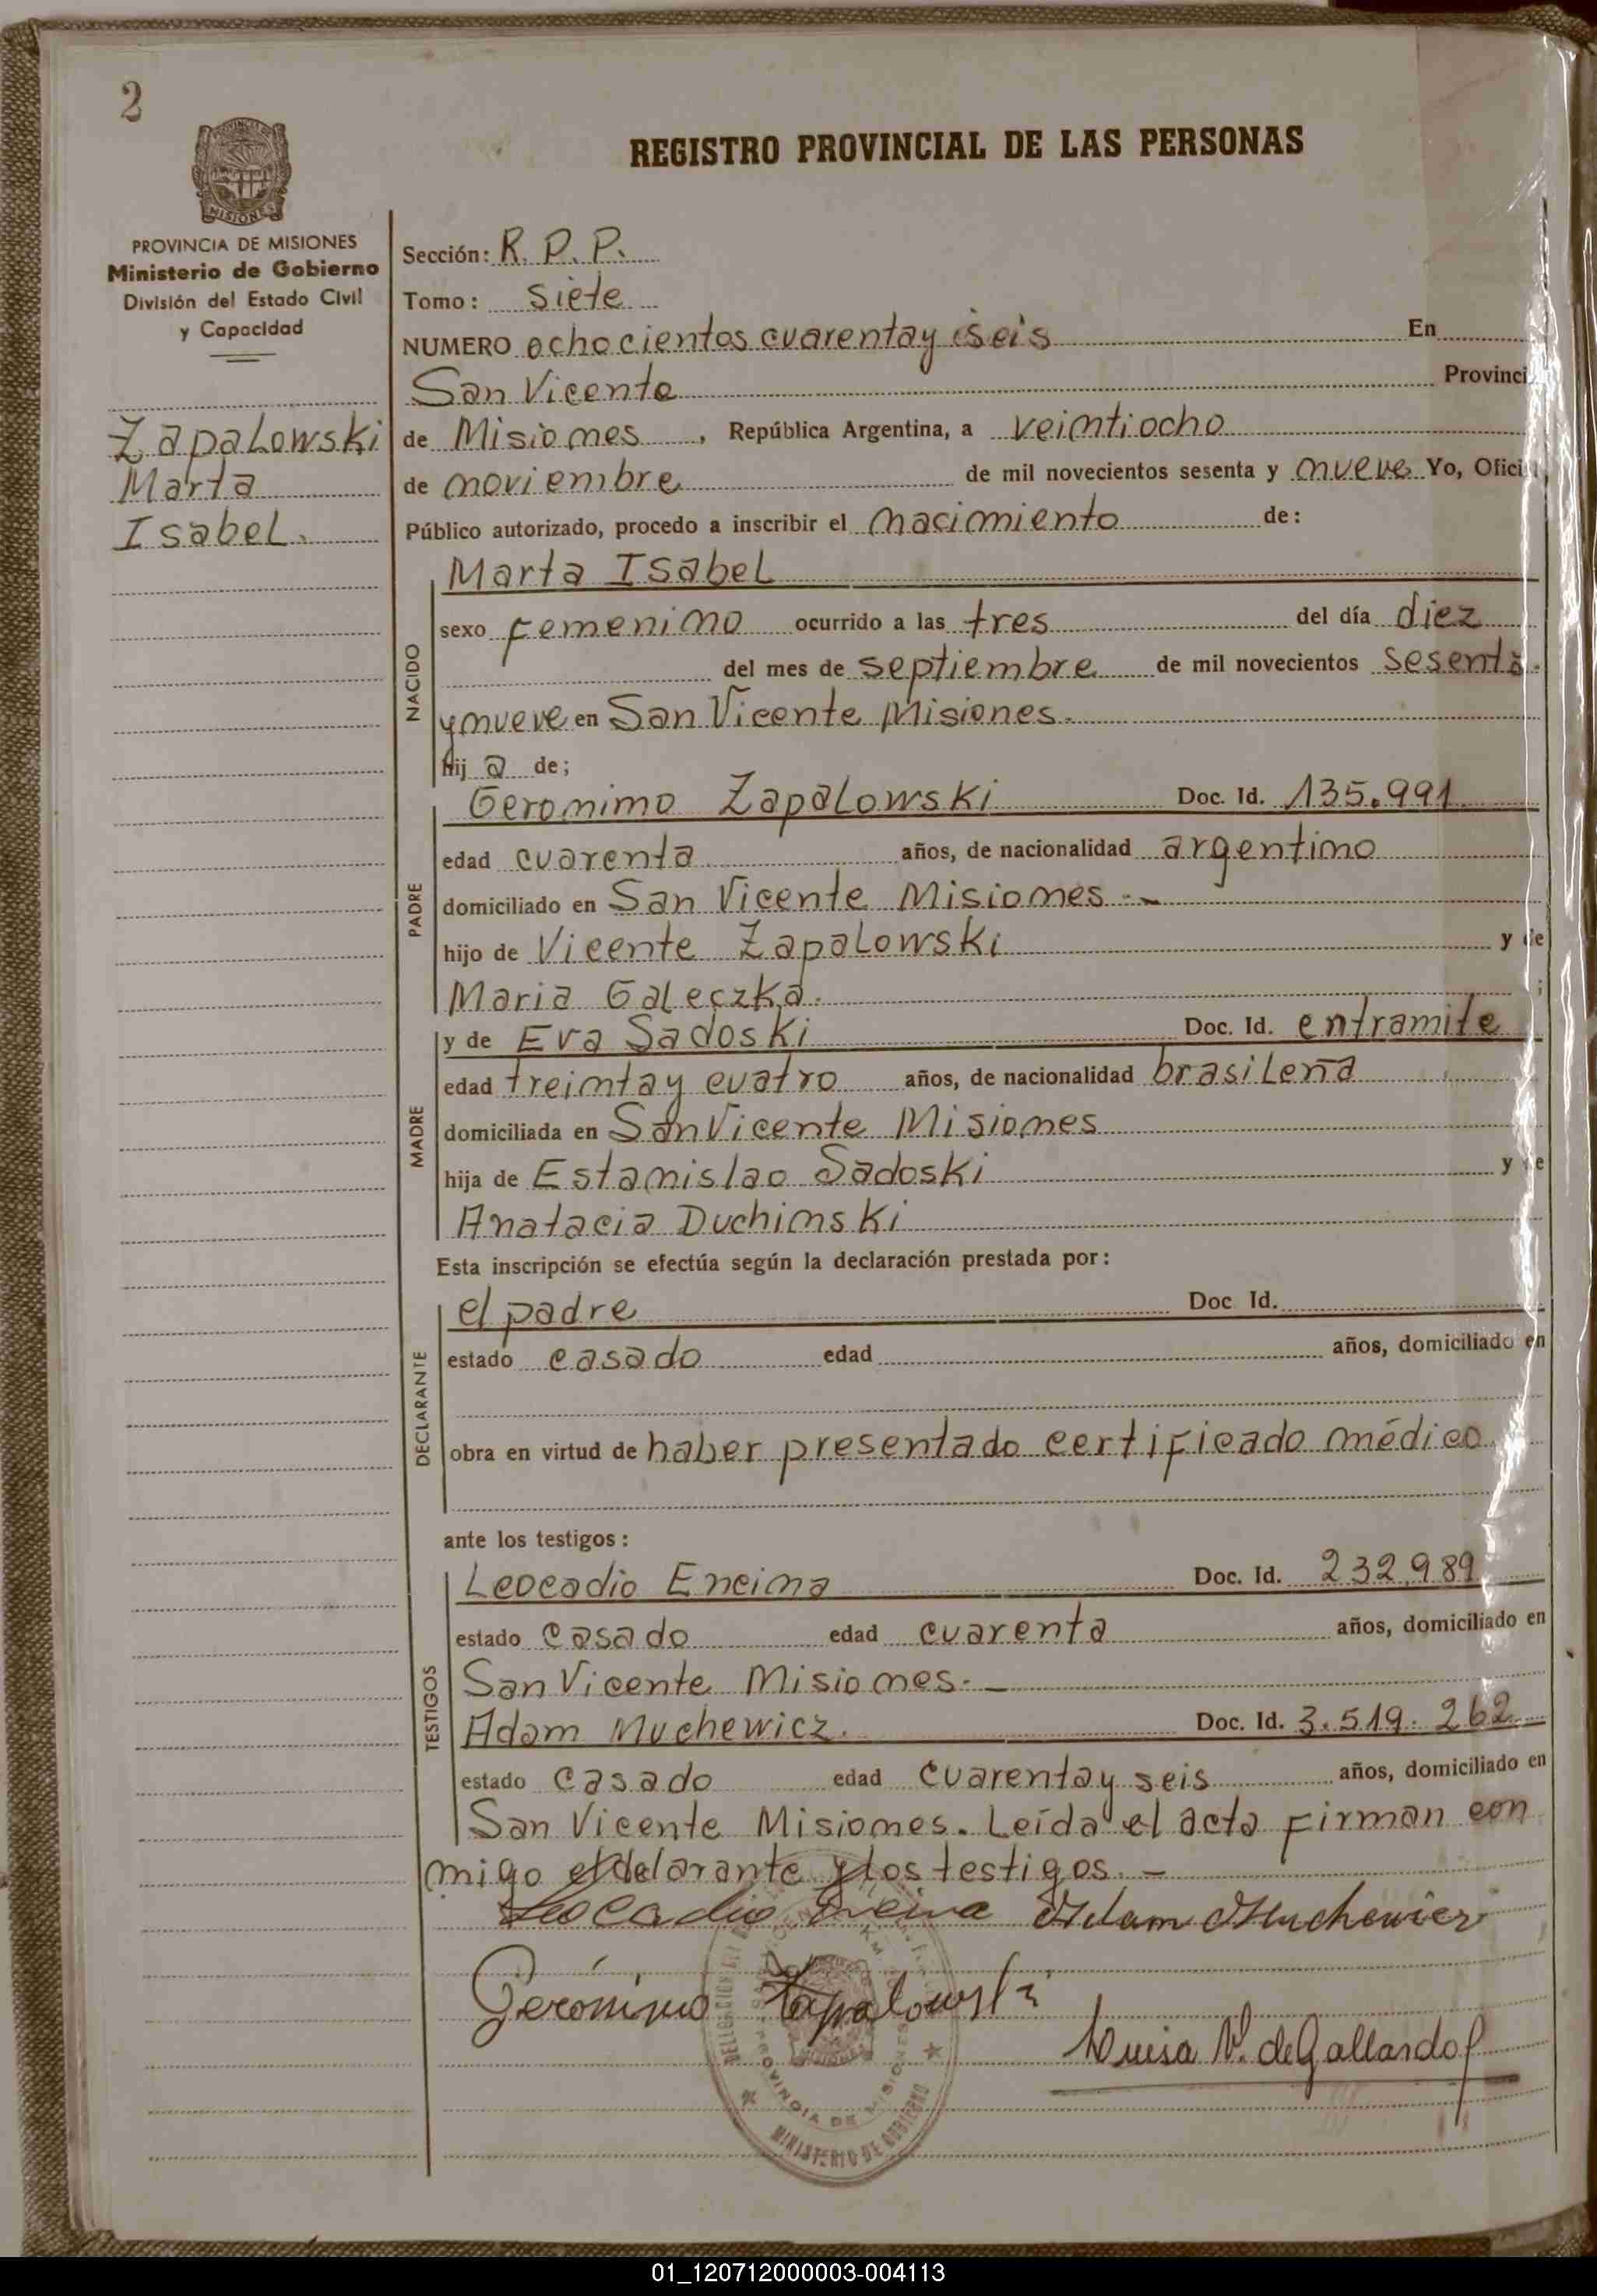 2
PROVINCIA DE MISIONES
Ministerio de Gobierno
División del Estado Civil
y Capacidad
Zapalowski
Marta
Isabel.
REGISTRO PROVINCIAL DE LAS PERSONAS
Sección: R. P. P.
Tomo: Siete
NUMERO ochocientos cuarentay seis En
San Vicente Provinci
de Misiones , República Argentina, a veintiocho
de noviembre de mil novecientos sesenta y nueve Yo, Ofici
Público autorizado, procedo a inscribir el nacimiento de:
NACIDO
Marta Isabel
sexo Femenino ocurrido a las tres del día diez
del mes de septiembre de mil novecientos sesenta
y nueve en San Vicente Misiones.
hij a de;
PADRE
Geronimo Zapalowski Doc. Id. 135.991
edad cuarenta años, de nacionalidad argentino
domiciliado en San Vicente Misiones.-
hijo de Vicente Zapalowski y de
Maria Galeczka. ;
MADRE
y de Eva Sadoski Doc. Id. entramite
edad treintay cuatro años, de nacionalidad brasileña
domiciliada en San Vicente Misiones
hija de Estanislao Sadoski y de
Anatacia Duchinski
Esta inscripción se efectúa según la declaración prestada por:
DECLARANTE
el padre Doc Id.
estado casado edad años, domiciliado en
obra en virtud de haber presentado certificado médico
ante los testigos:
TESTIGOS
Leocadio Encina Doc. Id. 232.989
estado casado edad cuarenta años, domiciliado en
San Vicente Misiones.-
Adam Muchewicz. Doc. Id. 3.519.262
estado casado edad cuarentay seis años, domiciliado en
San Vicente Misiones. Leída el acta Firman con
migo el delarante y los testigos.-
Leocadio Encina Adam Muchewicz
Gerónimo Zapalowski
Luisa V. de Gallardo
PROVINCIA DE MISIONES
MINISTERIO DE GOBIERNO
01_120712000003-004113